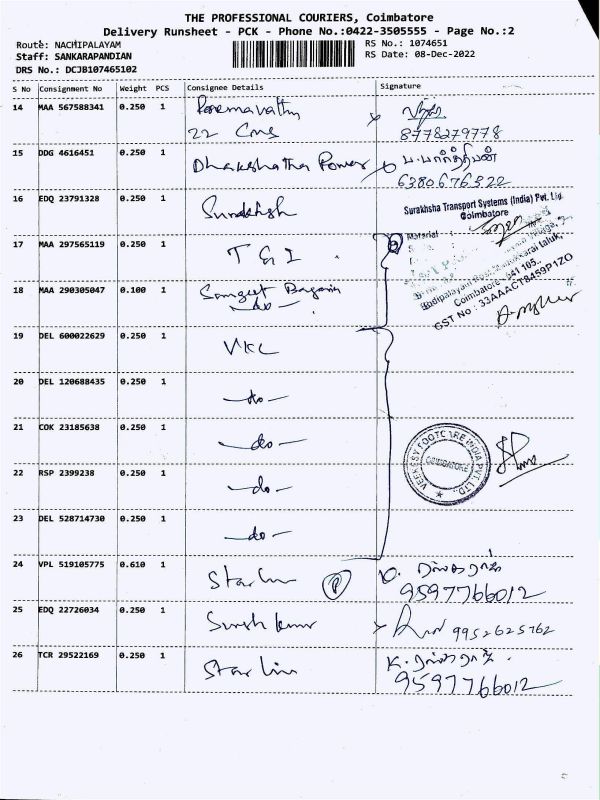 THE PROFESSIONAL COURIERS, Coimbatore
Delivery Runsheet - PCK - Phone No.:0422-3505555 - Page No.:2
Route: NACHIPALAYAM
RS No.: 1074651
Staff: SANKARAPANDIAN
RS Date: 08-Dec-2022
DRS No.: DCJB107465102
S No Consignment No Weight PCS Consignee Details Signature
14 MAA 567588341 0.250 1
22 Cms 8778279778
15 DDG 4616451 0.250 1 Dhakshatha Power
6380676322
16 EDQ 23791328 0.250 1
Surakhsha Transport Systems (India) Pvt. Ltd.
Coimbatore
Material :
17 MAA 297565119 0.250 1 T & I
Coimbatore - 641 105.
GST No : 33AAACT8459P1ZO
18 MAA 290305047 0.100 1 Sangeet
- do -
19 DEL 600022629 0.250 1 VKC
20 DEL 120688435 0.250 1 - do -
21 COK 23185638 0.250 1 - do -
VEEKESY FOOTCARE INDIA PVT. LTD.
COIMBATORE
22 RSP 2399238 0.250 1 - do -
23 DEL 528714730 0.250 1 - do -
24 VPL 519105775 0.610 1 Starlin P
9597766012
25 EDQ 22726034 0.250 1 Suresh kumar 9952625762
26 TCR 29522169 0.250 1 Starlin
9597766012